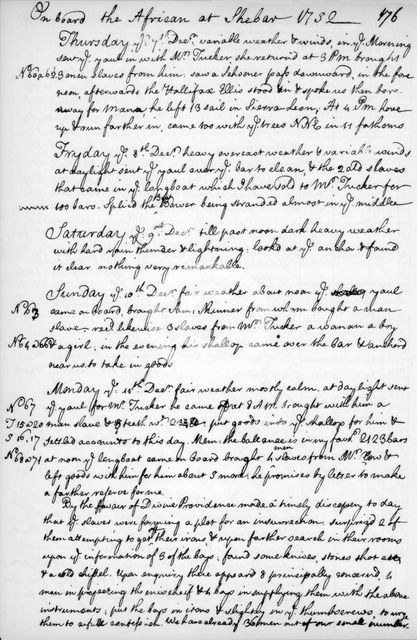 On board the African at Shebar 1752 176
Thursday yͤ 7ͭ Decͬ variable weather & winds, in yͤ Morning
sent yͤ yaul in with Mͬ Tucker, she returned at 3 PM brought
Nº 60 a 62 3 men slaves from him: saw a schooner pass downward, in the fore
noon, afterwards the Hallifax Ellis stood in & spoke us then bore
away for Mana, he left 13 sail in Sierra Leon, At 4 PM hove
up & run farther in, came too with yͤ trees NNE in 11 fathoms
Fryday yͤ 8ͭͪ Decͬ heavy overcast weather & variable winds
at daylight sent yͤ yaul over yͤ bar to clean, & the 2 old slaves
that came in yͤ longboat which I have sold to Mͬ Tucker for
100 bars. Splic'd the Bower being stranded almost in yͤ middle
Saturday yͤ 9ͭͪ Decͬ till past noon dark heavy weather
with hard rain thunder & lightning: looked at yͤ anchor & found
it clear nothing very remarkable.
Sunday yͤ 10ͭͪ Decͬ fair weather about noon yͤ yaul
Nº 63 came on board, brought Sam: Skinner from whom bought a man
slave, rec'd likewise 3 slaves from Mͬ Tucker a woman a boy
Nº 64 a 66 & a girl; in the evening his shallop came over the bar & anchord
near us to take in goods
Monday yͤ 11ͭͪ Decͬ fair weather mostly calm. at daylight sent
Nº 67 yͤ yaul for Mͬ Tucker he came off at 8 AM brought with him a
T 15 a 20 man slave & teeth put goods into yͤ shallop for him &
S 16, 17 settled accounts to this day. Mem: the ballance is in my favͬ 2123 bars
Nº 68 a 71 at noon yͤ longboat came on board brought 4 men slaves from Mͬ &
left goods with him for about 5 more: he promises by letter to make
a farther reserve for me.
By the favour of Divine Providence made a timely discovery to day
that yͤ slaves were forming a plot for an insurrection. surprized 2 of
them attempting to get their irons, & upon farther search in their rooms
upon yͤ information of 3 of the boys, found some knives, stones shot etc
& a cold chissel. Upon enquiry there appeard 8 principally concerned, 4
men in preparing the mischeif & 4 boys in supplying them with the above
instruments; put the boys in irons & slightly in yͤ thumbscrews, to urge
them to a full confession. We have already 36 men out of our small number.